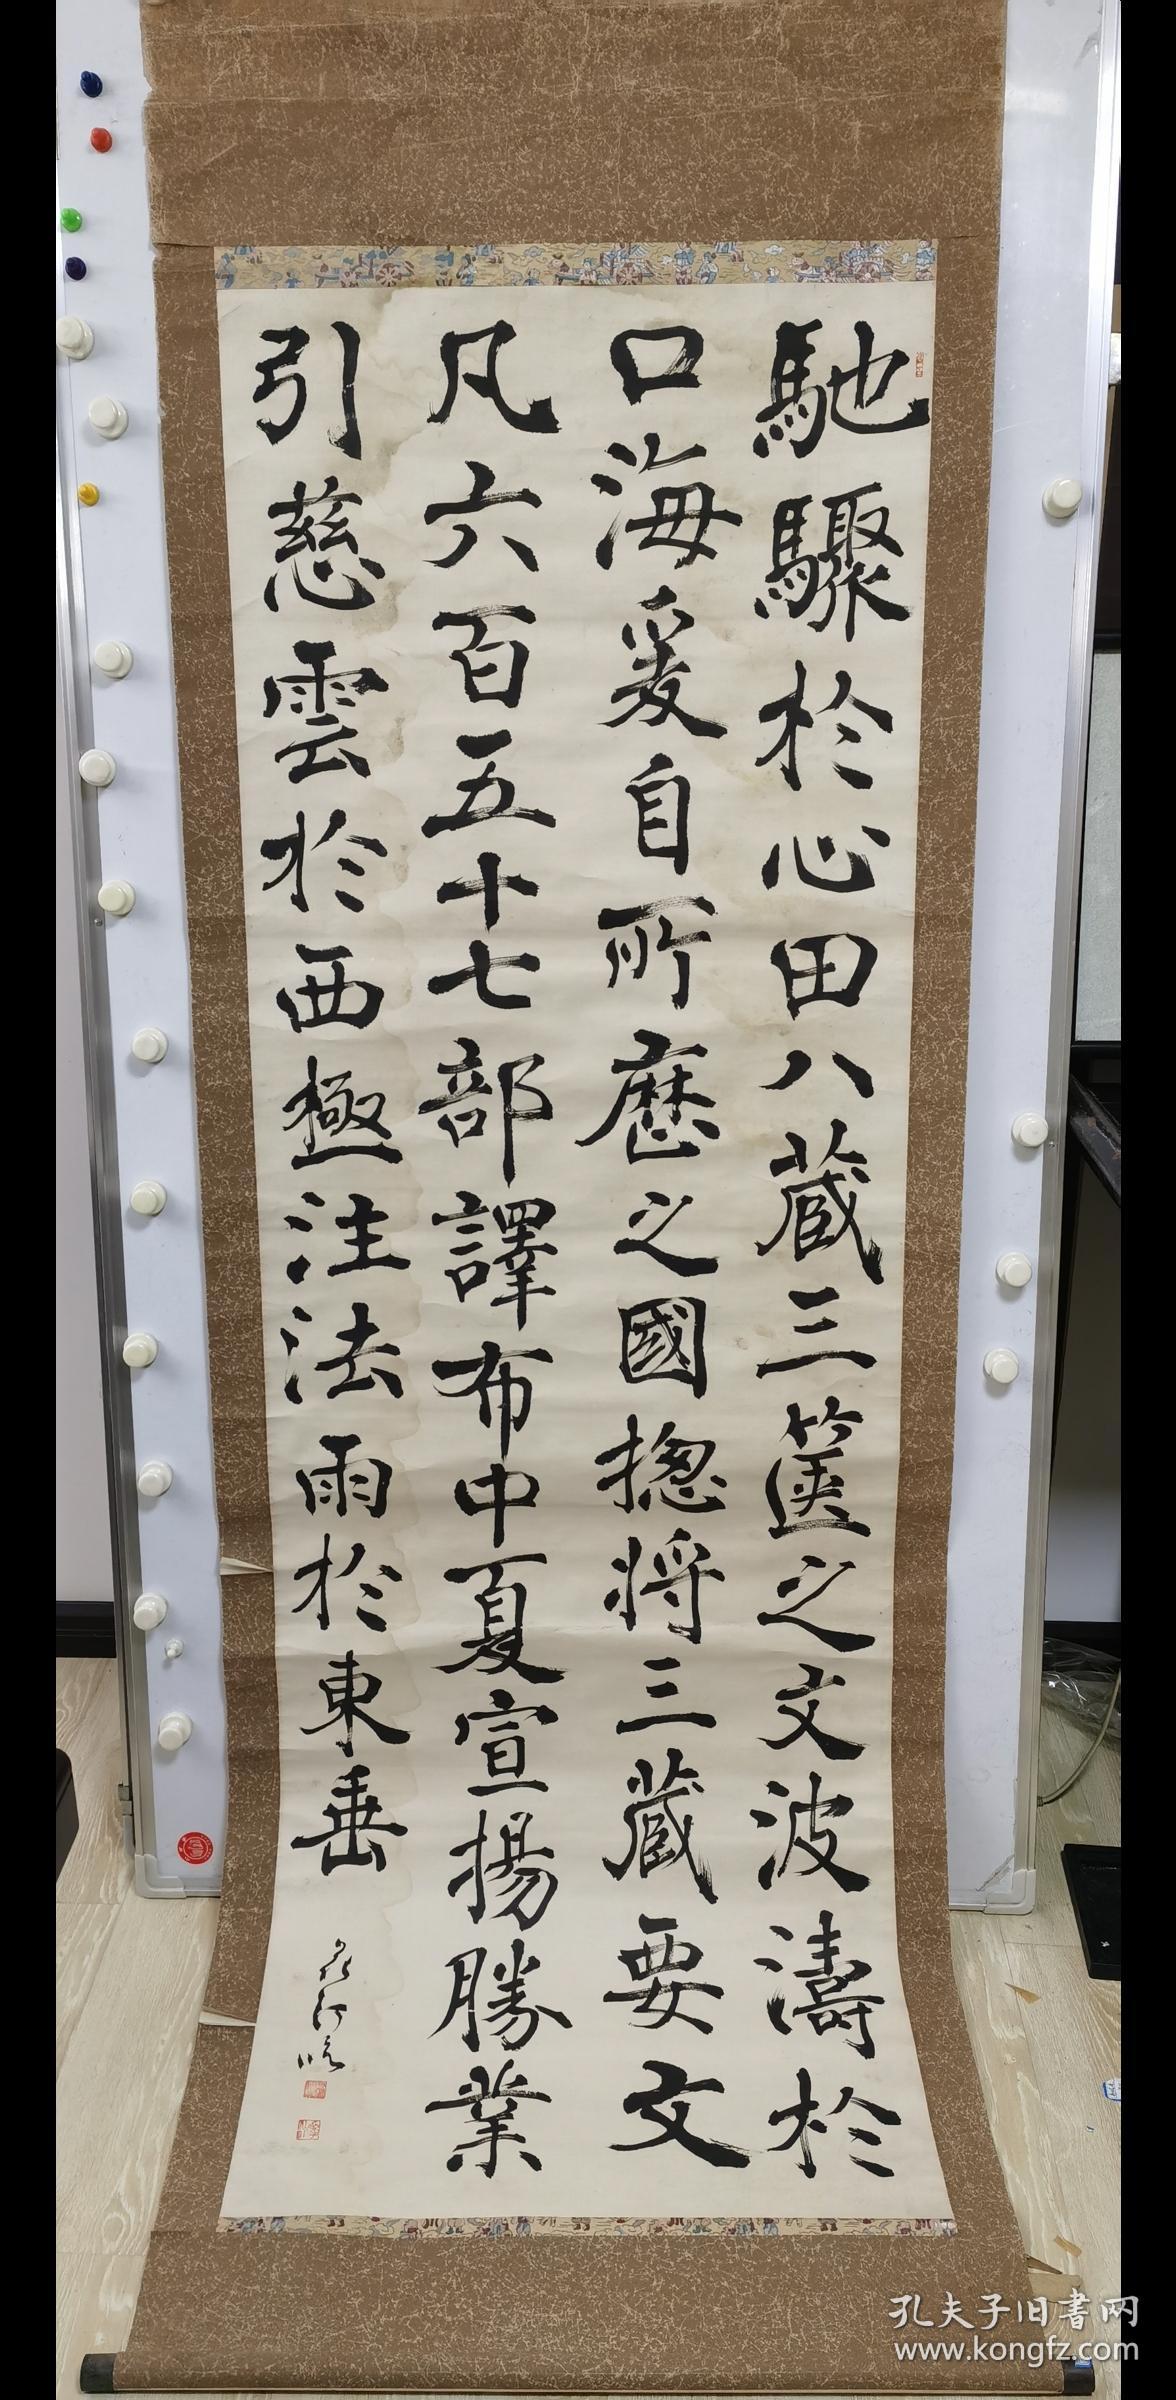 馳驟於心田八藏三篋之文波濤於
口海爰自所歷之國揔将三藏要文
凡六百五十七部譯布中夏宣揚勝業
引慈雲於西極注法雨於東垂
孔夫子旧書网
www.kongfz.com